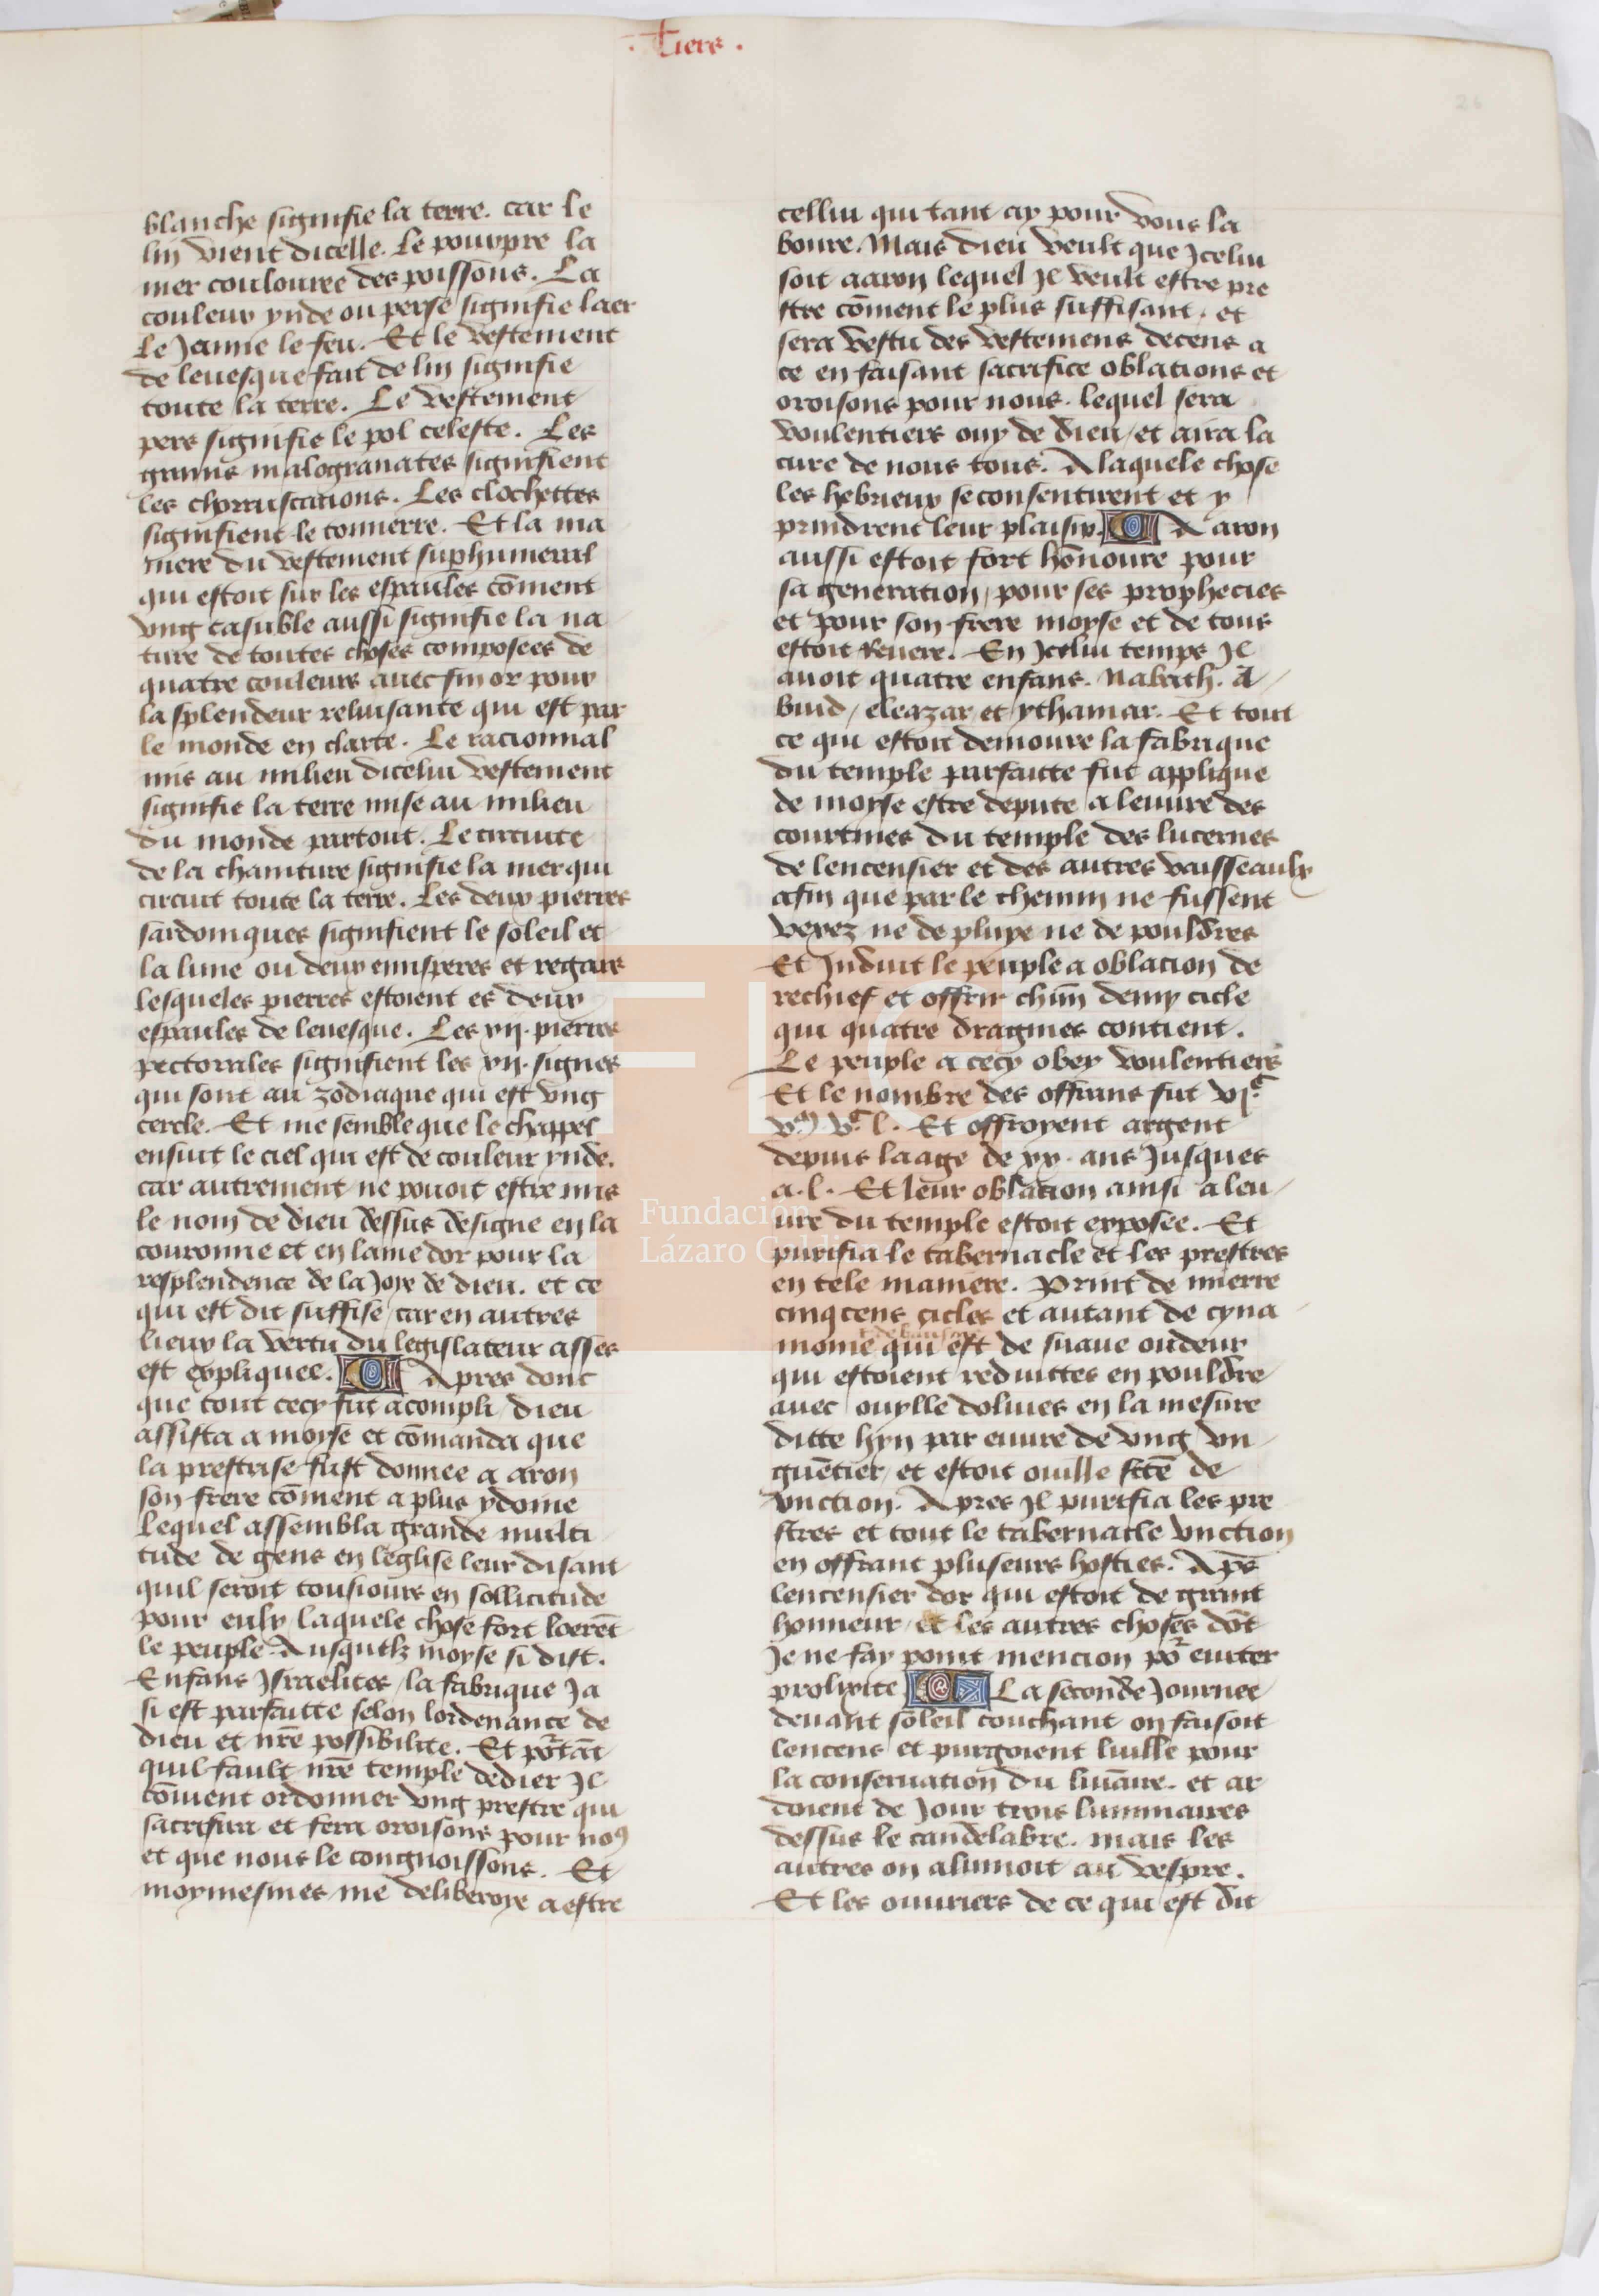 . Tiers .
26
blanche signifie la terre. car le
lin vient dicelle. Le pourpre la
mer couloure des poissons. La
couleur ynde ou perse signifie laer
Le Jaune le feu. Et le vestement
de leuesque fait de lin signifie
toute la terre. Le vestement
pers signifie le pol celeste. Les
grains malogranates signifient
les chorruscations. Les clochettes
signifient le tonnerre. Et la ma
niere du vestement suphumeral
qui estoit sur les espaules cōment
vng casuble aussi signifie la na
ture de toutes choses composees de
quatre couleurs auec fin or pour
la splendeur reluisante qui est par
le monde en clarte. Le racionnal
mis au milieu dicelui vestement
signifie la terre mise au milieu
du monde partout. Le circuite
de la chainture signifie la mer qui
circuit toute la terre. Les deux pierres
sardoniques signifient le soleil et
la lune ou deux emisperes et regars
lesqueles pierres estoient es deux
espaules de leuesque. Les xij. pierres
pectorales signifient les xij. signes
qui sont au zodiaque qui est vng
cercle. Et me semble que le chappel
ensuit le ciel qui est de couleur ynde.
car autrement ne pouoit estre mis
le nom de dieu dessus designe en la
couronne et en lame dor pour la
resplendence de la Joye de dieu. et ce
qui est dit suffise / car en autres
lieux la vertu du legislateur asses
est expliquee. Apres donc
que tout cecy fut acompli / dieu
assista a moyse et cōmanda que
la prestrise fust donnee a aron
son frere cōment a plus ydoine
Lequel assembla grande multi
tude de gens en leglise leur disant
quil seroit tousiours en sollicitude
pour eulx / laquele chose fort loerēt
le peuple. Ausquelz moyse si dist.
Enfans Israelites / la fabrique Ja
si est parfaitte selon lordenance de
dieu et nr̄e possibilite. Et pōtāt
quil fault nr̄e temple dedier Il
cōuient ordonner vng prestre qui
sacrifira et fera oroisons pour noꝰ
et que nous le congnoissons. Et
moymesmes me deliberoye a estre
cellui qui tant ay pour vous la
boure. Mais dieu veult que Icelui
soit aaron lequel Il veult estre pre
stre cōment le plus suffisant / et
sera vestu des vestemens decens a
ce en faisant sacrifice oblations et
oroisons pour nous. lequel sera
voulentiers ouy de dieu / et aira la
cure de nous tous. A laquele chose
les hebrieux se consentirent et y
prindrent leur plaisir. Aaron
aussi estoit fort hōnoure pour
sa generation / pour ses prophecies
et pour son frere moyse et de tous
estoit Reuere. En Icelui temps Il
auoit quatre enfans. Nabath. A
biud / eleazar et ythamar. Et tout
ce qui estoit demoure la fabrique
du temple parfaitte fut applique
de moyse estre depute a leuure des
courtines du temple des lucernes
de lencensier et des autres vaisseaulx
afin que par le chemin ne fussent
vexez ne de pluye ne de pouldres
Et Induit le peuple a oblacion de
rechief et offrir chūn demy cicle
qui quatre dragmes contient.
Le peuple a cecy obey voulentiers
Et le nombre des offrans fut vj.c
v.m v.c l. Et offroyent argent
depuis laage de xx. ans Jusques
a .l. Et leur oblacion ainsi a leu
ure du temple estoit exposee. Et
purifia le tabernacle et les prestres
en tele maniere. Print de mierre
cinqcens cicles et autant de cyna
mome qui est de suaue oudeur
qui estoient reduittes en pouldre
auec ouylle doliues en la mesure
ditte hyn par euure de vng vn
guētier / et estoit ouille sctē de
vnction. Apres Il purifia les pre
stres et tout le tabernacle vnction
en offrant pluseurs hosties. Ap̄s
lencensier dor qui estoit de grant
honneur / et les autres choses dōt
Je ne fay point mencion po2 euiter
prolixite La seconde Journee
deuant soleil couchant on faisoit
lencens et purgoient luille pour
la conseruation du luīaire. et ar
doient de Jour trois luminaires
dessus le candelabre. mais les
autres on alumoit au vespre.
Et les ouuriers de ce qui est dit
Fundación
Lázaro Galdiano